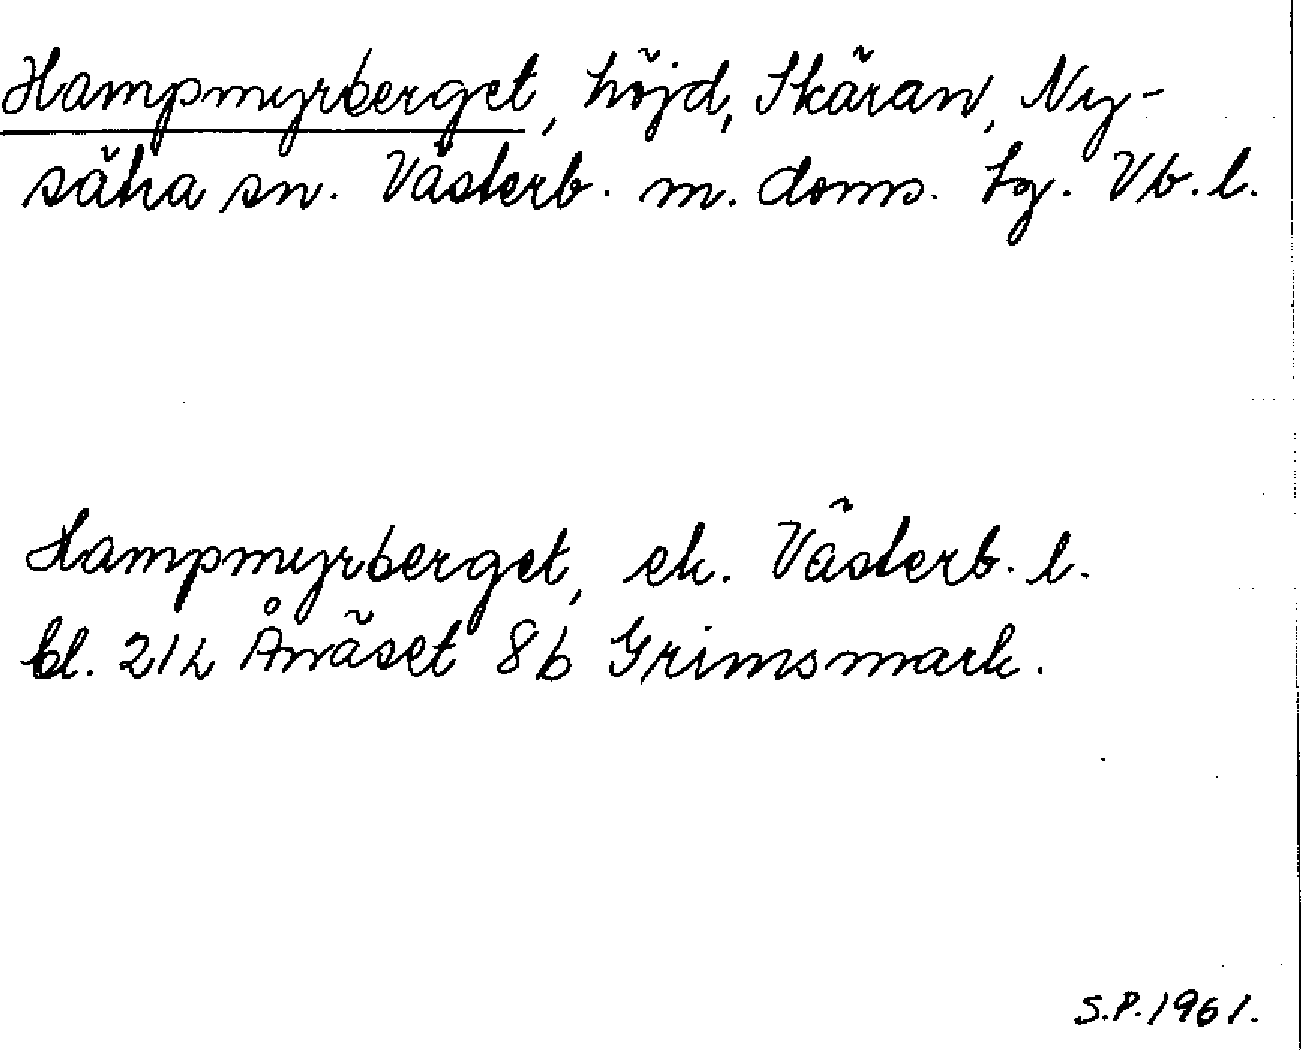 Hampmyrberget, höjd, Skäran, Ny-
sätra sn. Västerb. m. doms. tg. Vb. l.
Hampmyrberget, ek. Västerb. l.
bl. 21L Ånäset 8b Grimsmark.
S.P. 1961.